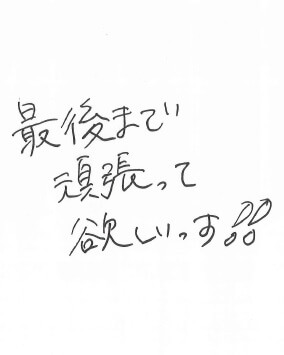 最後まで
頑張って
欲しいっす!!